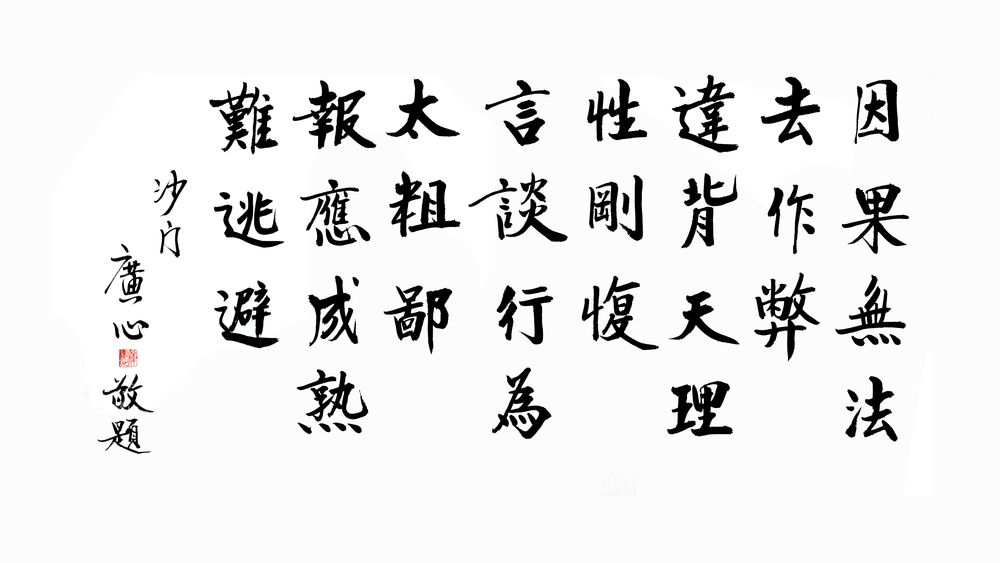 因果無法
去作弊
違背天理
性剛愎
言談行為
太粗鄙
報應成熟
難逃避
沙门
廣心
敬題